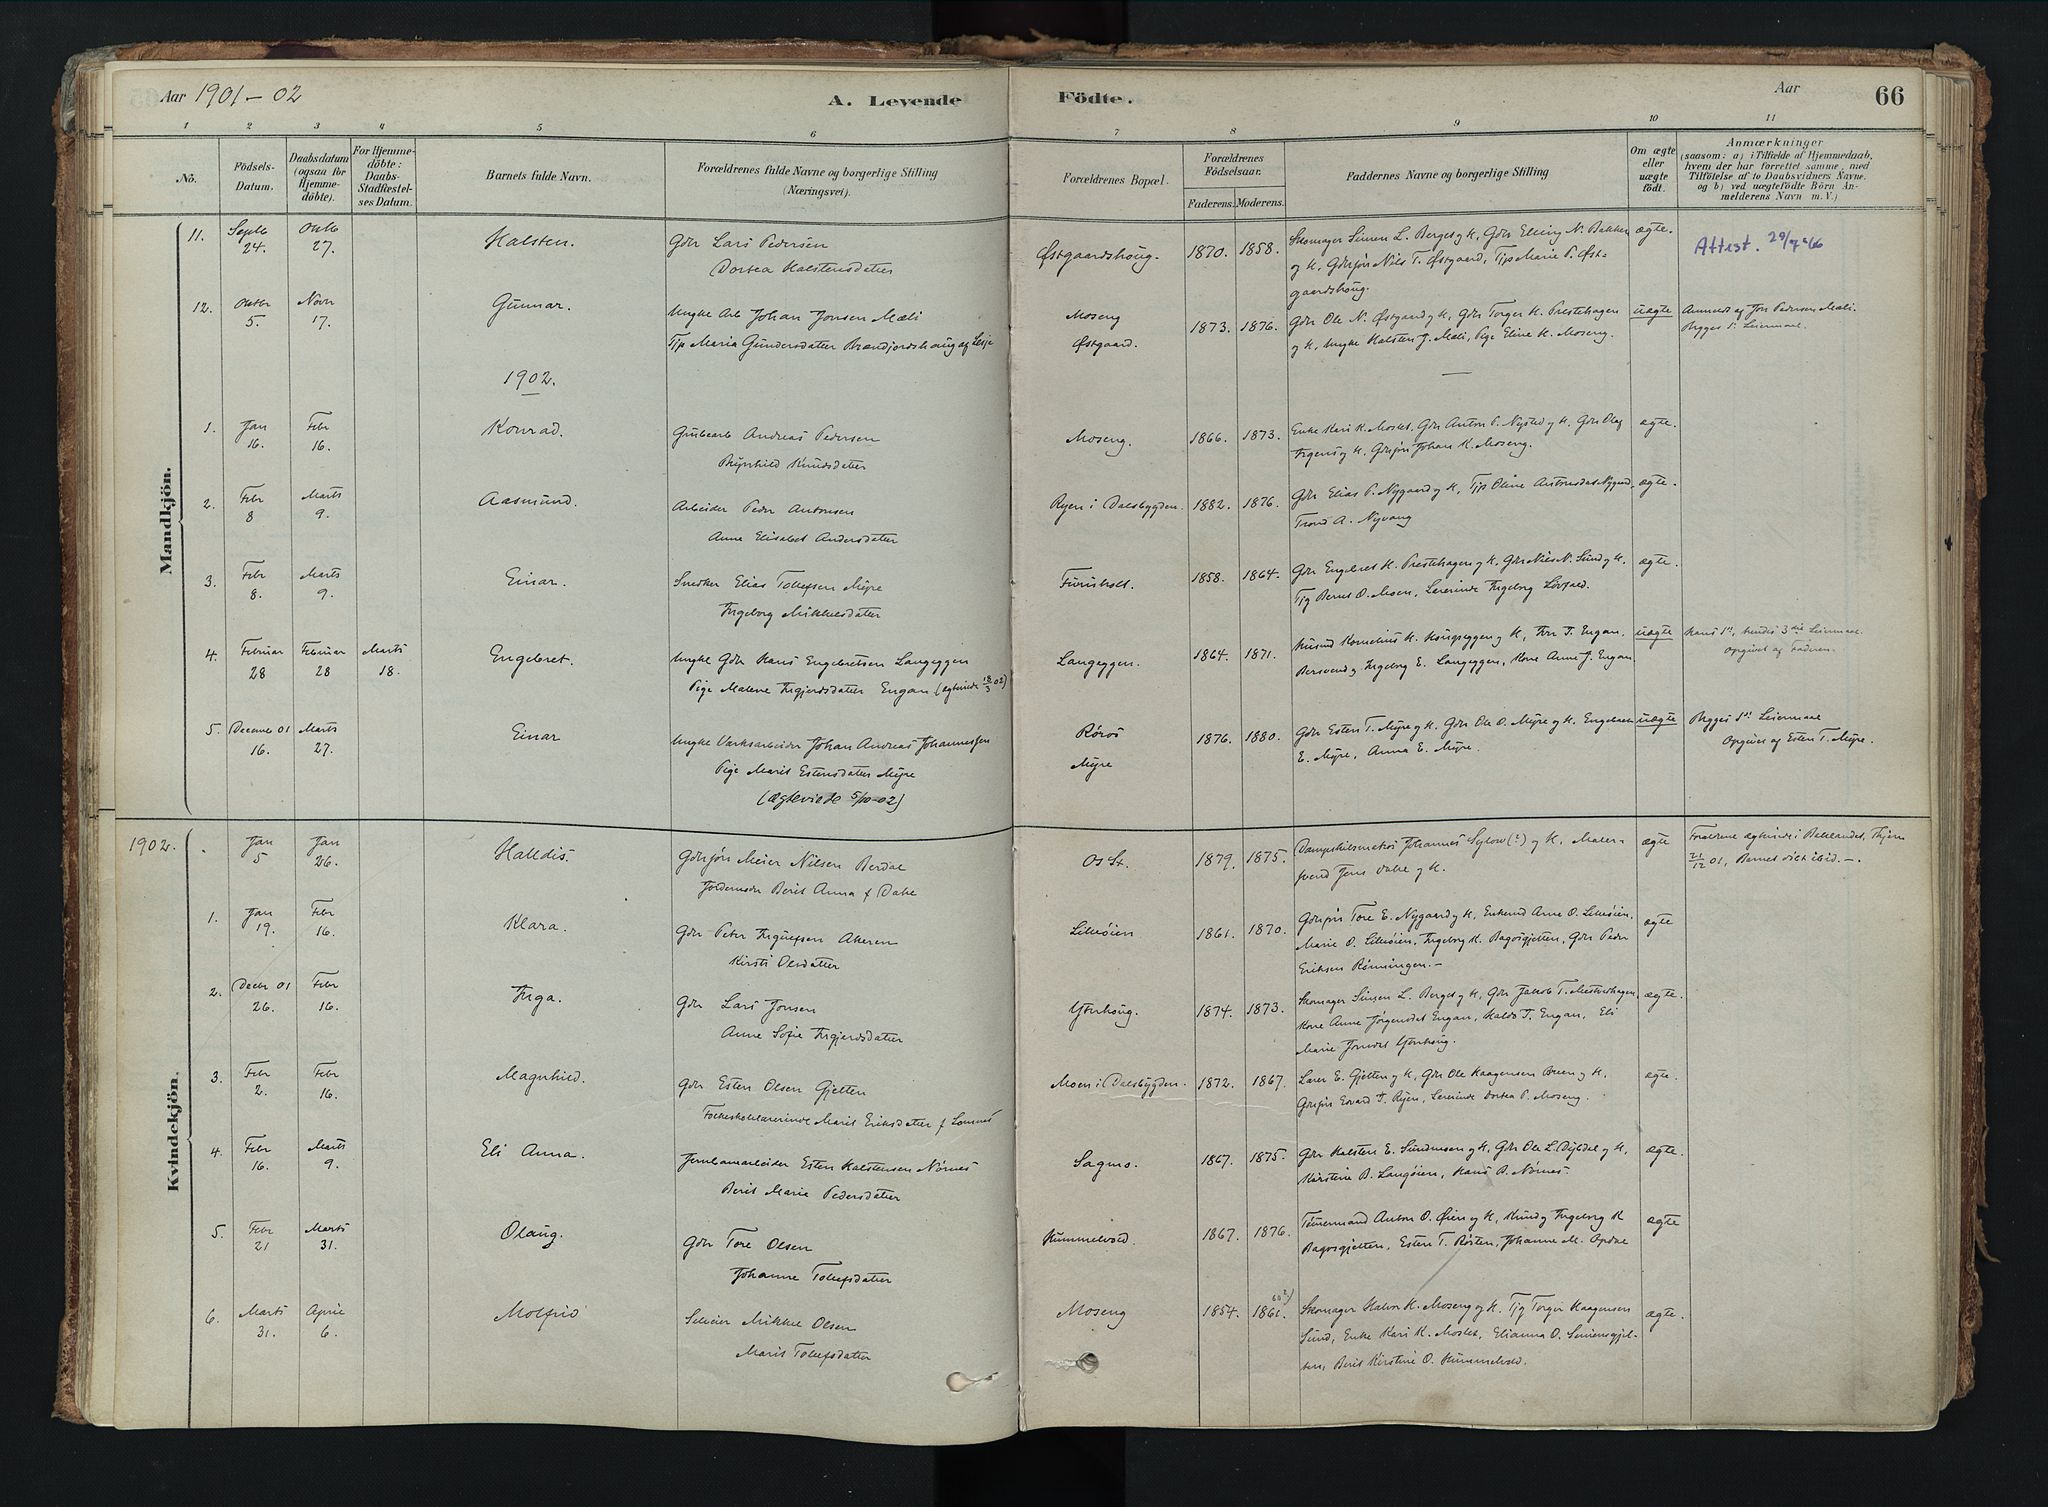 Aar 1901-02
A. Levende
Födte.
Aar
66
1 2 3 4 5 6 7 8 9 10 11
No.
Födsels-
Datum.
Daabsdatum
(ogsaa for
Hjemme-
döbte).
For Hjemme-
döbte:
Daabs-
Stadfæstel-
ses Datum.
Barnets fulde Navn.
Forældrenes fulde Navne og borgerlige Stilling
(Næringsvei).
Forældrenes Bopæl.
Forældrenes
Födselsaar.
Faderens. Moderens.
Faddernes Navne og borgerlige Stilling
Om ægte
eller
uægte
födt.
Anmærkninger
(saasom: a) i Tilfælde af Hjemmedaab,
hvem der har forrettet samme, med
Tilföielse af to Daabsvidners Navne,
og b) ved uægtefödte Börn An-
melderens Navn m. V.)
Mandkjön.
11. Septb 24. Oktb 27. Halsten.
Gbr Lars Pedersen
Dortea Halstensdatter
Østgaardshoug. 1870. 1858.
Skomager Simen L. Berget og H, Gbr Elling N. Bakken
og H, Gbrsjøn Nils T. Østgaard, Tjp Marie P. Øst-
gaardshoug.
ægte.
Attest. 29/7 66
12. Oktbr 5. Novr 17. Gunnar.
Ungke Arb Johan Jonsen Mæli
Tjp Maria Gundersdatter Brændjordshoug af Lesje
Moseng
Østgaard.
1873. 1876.
Gbr Ole N. Østgaard og H, Gbr Torger H. Prestehagen
og H, Ungke Halsten J. Mæli, Pige Eline H. Moseng.
uægte
Anmeldt af Jon Pedersen Mæli.
Begges 1. Leiermaal.
1902.
1. Jan 16. Febr 16. Konrad.
Grubearb Andreas Pedersen
Brynhild Knudsdatter
Moseng. 1866. 1873.
Enke Kari K. Moslet, Gbr Anton P. Nysted og H, Gbr Olaf
og H, Gbrsjøn Johan K. Moseng.
ægte.
2. Febr 8 Marts 9. Aasmund.
Arbeider Peder Antonsen
Anne Elisabet Andersdatter
Ryen i Dalsbygden. 1882. 1876.
Gbr Elias P. Nygaard og H, Tjp Oline Antonsdat Nygaard,
Trond A. Nyvang
ægte.
3. Febr 8. Marts 9. Einar.
Snedker Elias Tollefsen Myre
Ingeborg Mikkelsdatter
Furuholt. 1858. 1864.
Gbr Engebret H. Prestehagen og H, Gbr Nils N. Sund og H,
Tjg Bernt O. Moen, Lærerinde Ingeborg
ægte.
4. Februar 28 Februar 28 Marts 18. Engebret.
Ungke Gbr Hans Engebretsen Langeggen
Pige Malene Ingjerdsdatter Engan (ægteviede 18/3 02)
Langeggen. 1864. 1871.
Husmd Kornelius H. Haugseggen og H, Iver T. Engan,
Bersvend og Ingeborg E. Langeggen, Kone Anne J. Engan
uægte
Hans 1ste, hendes 3die Leiermaal.
Opgivet af Faderen.
5. Decembr 01 16. Marts 27. Einar
Ungke Værksarbeider Johan Andreas Johannessen
Pige Marit Estensdatter Myre
(Ægteviede 5/10-02)
Røros
Myre
1876. 1880.
Gbr Esten T. Myre og H, Gbr Ole O. Myre og H, Engebret
E. Myre, Anna E. Myre.
uægte
Begges 1ste Leiermaal
Opgivet af Esten T. Myre.
Kvindekjön.
1902.
Jan 5 Jan 26. Halldis.
Gbrsjøn Meier Nilsen Berdal
Jordemoder Berit Anna f Dahl
Os St. 1879. 1875.
Johannes Sylow (?) og H, Maler-
svend Jens Dahl og H.
ægte
Forældrene ægteviede i Bekkelandet,
21/12 01, Barnet døbt ibid. -.
1. Jan 19. Febr 16. Klara.
Gbr Peter Ingulfsen Akeren
Kirsti Olsdatter
Lilleøien 1861. 1870.
Gbrsjøn Tore E. Nygaard og H, Enkemd Arne O. Lilleøien,
Marie O. Lilleøien, Ingeborg K. Bagosgjetten, Gbr Peder
Eriksen Rønningen.-
ægte
2. Decbr 01 26. Febr 16. Inga.
Gbr Lars Jonsen
Anne Sofie Ingjerdsdatter
Ytrehoug. 1874. 1873.
Skomager Simen L. Berget og H, Gbr Jakob T. Mestershagen,
Kone Anne Jørgensdat Engan, Haldo T. Engan, Eli
Marie Jonsdat Ytrehoug.
ægte.
3. Febr 2. Febr 16. Magnhild.
Gbr Esten Olsen Gjetten
Folkeskolelærerinde Marit Eriksdatter f Lomnes
Moen i Dalsbygden. 1872. 1867.
Lærer E. Gjetten og H, Gbr Ole Haagensen Breen og H,
Gbrsjøn Edvard T. Ryen, Lærerinde Dortea P. Moseng.
ægte.
4. Febr 16. Marts 9. Eli Anna.
Jernbanearbeider Esten Halstensen Nørnes
Berit Marie Pedersdatter
Sagmo. 1867. 1875.
Gbr Halsten E. Sundmoen og H, Gbr Ole L. Dybdal og H,
Kirstine B. Langøien, Hans B. Nørnes
ægte.
5. Febr 21 Marts 31. Olaug.
Gbr Tore Olsen
Johanne Tollefsdatter
Hummelvold. 1867. 1876.
Tømmermand Anton O. Øien og H, Knud og Ingeborg K
Bagosgjetten, Esten T. Røsten, Johanne M. Opdal
ægte
6. Marts 31. April 6. Molfrid
Selveier Mikkel Olsen
Marit Tollefsdatter
Moseng 1854. 1861.
Skomager Halvor K. Moseng og H, Tjg Torger Haagensen
Sund, Enke Kari K. Moslet, Elianna O. Simensgjel-
ten, Berit Kirstine O. Hummelvold.
ægte.